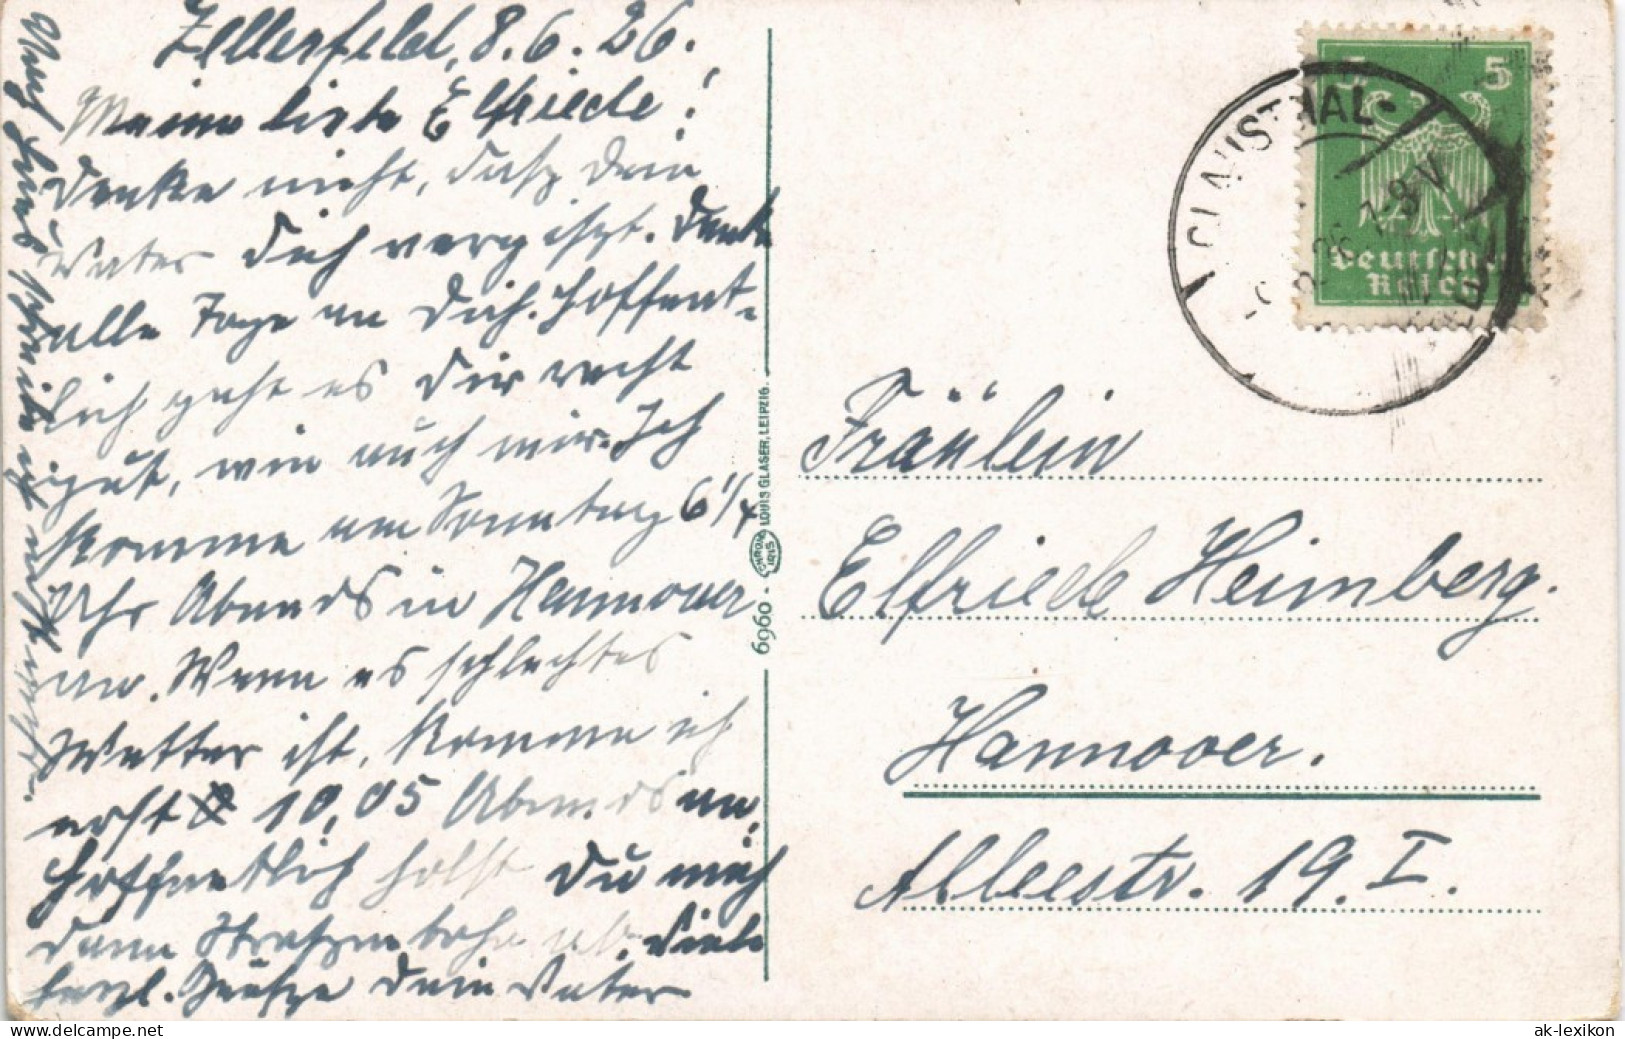 Zellerfeld, 8.6.26.
Meine liebe Elfriede!
Denke nicht, dasz Dein
Vater Dich vergiszt. Denke
alle Tage an Dich. Hoffent-
lich geht es Dir recht
gut, wie auch mir. Ich
komme am Sonntag 6 1/4
Uhr Abends in Hannover
an. Wenn es schlechtes
Wetter ist, komme ich
erst 10,05 Abends an,
hoffentlich holst Du mich
dann Straszenbahn ab. Viele
herzl. Grüsze Dein Vater
CHROM IRIS
6960 · LOUIS GLASER, LEIPZIG.
CLAUSTHAL
7-8 V
5 5
Deutsches
Reich
Fräulein
Elfriede Heimberg.
Hannover.
Alleestr. 19. I.
ak-lexikon